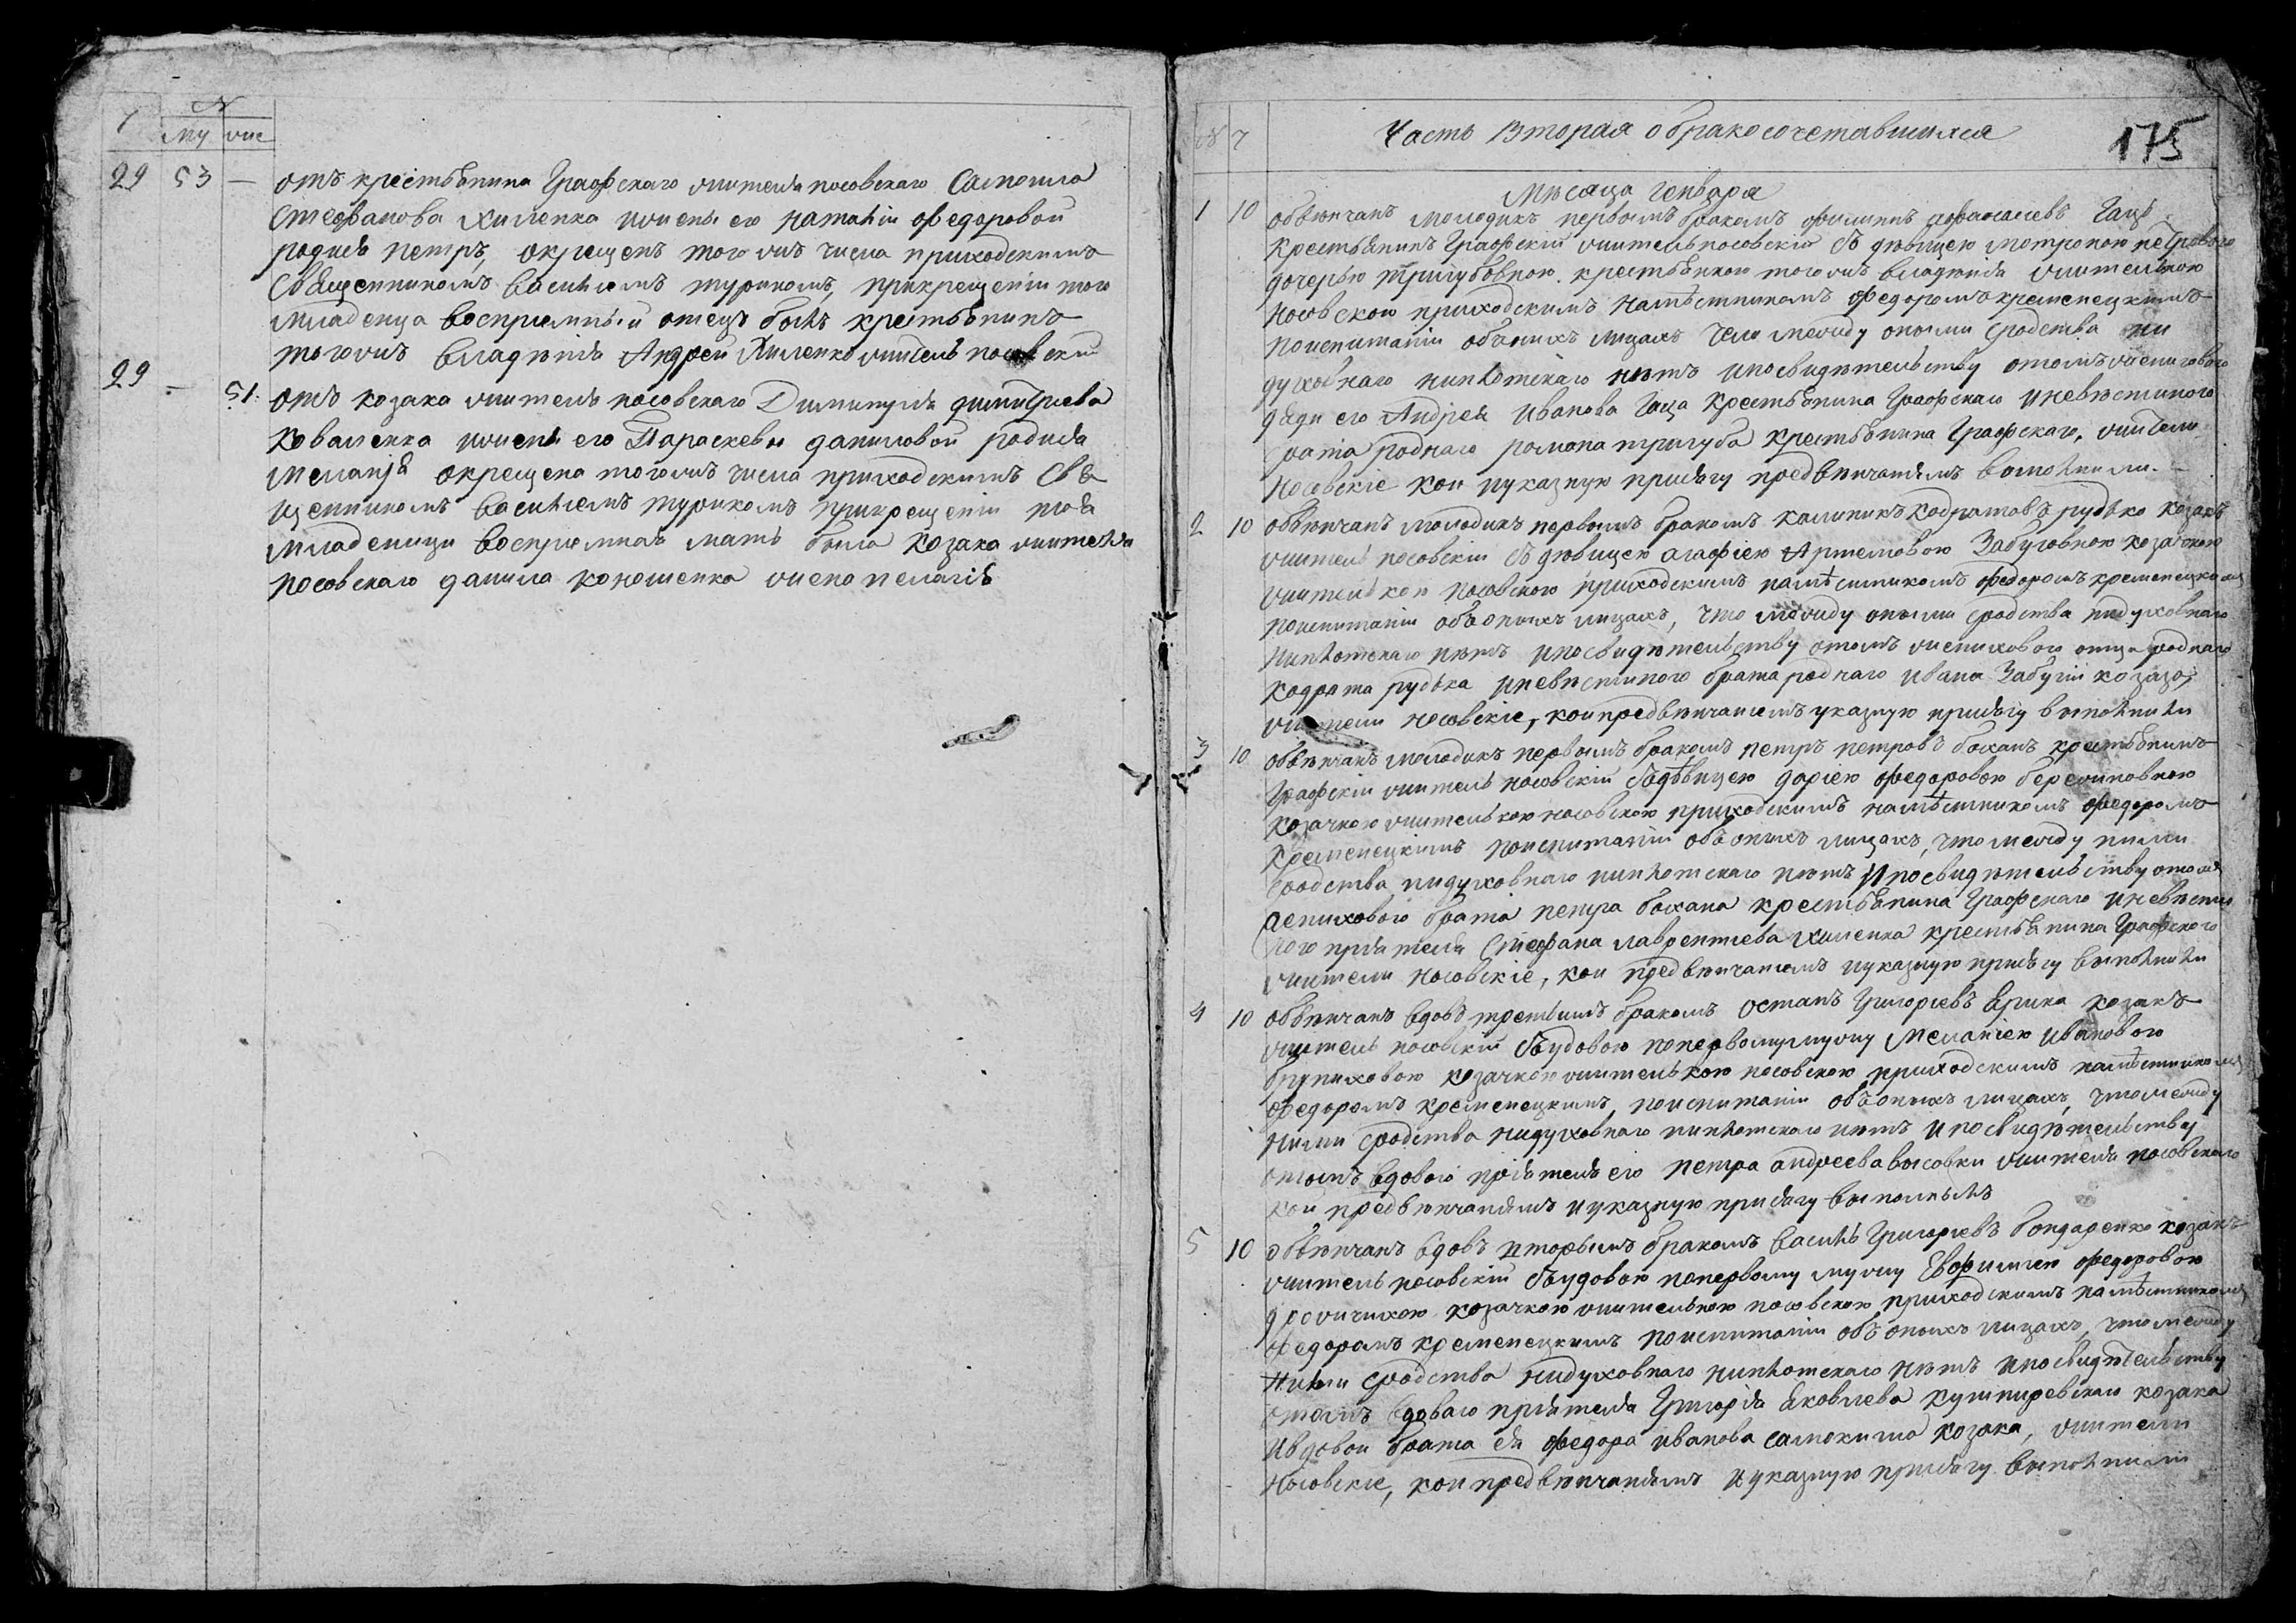 Ч № му жен
29 53 — отъ крестьянина Графскаго жителя носовскаго Самоила
Стефанова Хиленка и жены его Наталіи Федоровой
родися петръ, окрещенъ того жъ числа приходскимъ
Священникомъ Василіемъ туриномъ, при крещеніи того
младенца воспріемный отецъ былъ крестьянинъ
того жъ владенія Андрей Хиленко житель носовскій
29 — 51. отъ козака жителя носовскаго Димитрія димитріева
коваленка и жены его Параскевы даниловой родися
меланія окрещена того жъ числа приходскимъ Свя
щенникомъ Василіемъ туриномъ при крещеніи тоя
младеницы воспріемная мать была козака жителя
носовскаго данила коношенка жена пелагія
Часть Вторая о бракосочетавшихся 175
Мѣсяца Генваря
1 10 обвѣнчанъ молодикъ первымъ бракомъ филипъ афанасиевъ Гаца
крестьянинъ Графскій житель носовскій съ дѣвицею мотроною петровою
дочерью тригубовною крестьянкою того жъ владенія жителькою
носовскою приходскимъ намѣстникомъ федоромъ кременецкимъ
по испитаніи объ оныхъ лицахъ что между оными сродства ни
духовнаго ни плотскаго нѣтъ и по свидѣтельству о томъ жениховаго
дяди его Андрея Иванова Гаца крестьянина Графскаго и невѣстиного
брата роднаго романа тригуба крестьянина Графскаго, жители
носовскіе кои и указную присягу предвѣнчаніемъ выполнили.
2 10 обвѣнчанъ молодикъ первымъ бракомъ калиникъ кодратовъ рудько козакъ
житель носовскій съ дѣвицею агафіею Артемовою Забуговною козачкою
жителькою носовскою приходскимъ намѣстникомъ федоромъ кременецкимъ
по испитаніи объ оныхъ лицахъ, что между оными сродства ни духовнаго
ни плотскаго нѣтъ и по свидѣтельству о томъ жениховаго отца роднаго
кодрата рудька и невѣстиного брата роднаго ивана Забуги козаковъ
жители носовскіе, кои предвѣнчаніемъ указную присягу выполнили
3 10 обвѣнчанъ молодикъ первымъ бракомъ петръ петровъ боханъ крестьянинъ
Графскій житель носовскій съ дѣвицею даріею федоровою
козачкою жителькою носовскою приходскимъ намѣстникомъ федоромъ
кременецкимъ по испитаніи объ оныхъ лицахъ, что между ними
сродства ни духовнаго ни плотскаго нѣтъ и по свидѣтельству о томъ
жениховаго брата петра бохана крестьянина Графскаго и невѣсти
ного пріятеля Стефана лаврентіева хиленка крестьянина Графского
жители носовскіе, кои предвѣнчаніемъ и указную присягу выполнили
4 10 обвѣнчанъ вдовъ третьимъ бракомъ остапъ Григоріевъ Ярина козакъ
житель носовскій съ удовою по первому мужу Меланіею Ивановою
козачкою жителькою носовскою приходскимъ намѣстникомъ
федоромъ кременецкимъ, по испитаніи объ оныхъ лицахъ, что между
ними сродства ни духовнаго ни плотскаго нѣтъ и по свидѣтельству
о томъ вдового пріятеля его петра андреева высовки жителя носовского
кои предвѣнчаніемъ и указную присягу выполнилъ
5 10 обвѣнчанъ вдовъ вторымъ бракомъ Василь Григорьевъ бондаренко козакъ
житель носовскій съ удовою по первому мужу Евфиміею федоровою
козачкою жителькою носовскою, приходскимъ намѣстникомъ
федоромъ кременецкимъ по испитаніи объ оныхъ лицахъ, что между
ними сродства ни духовнаго ни плотскаго нѣтъ и по свидѣтельству
о томъ вдоваго пріятеля Григорія яковлева козака
и вдовы брата ея федора иванова козака, жители
носовскіе, кои предвѣнчаніемъ и указную присягу выполнили